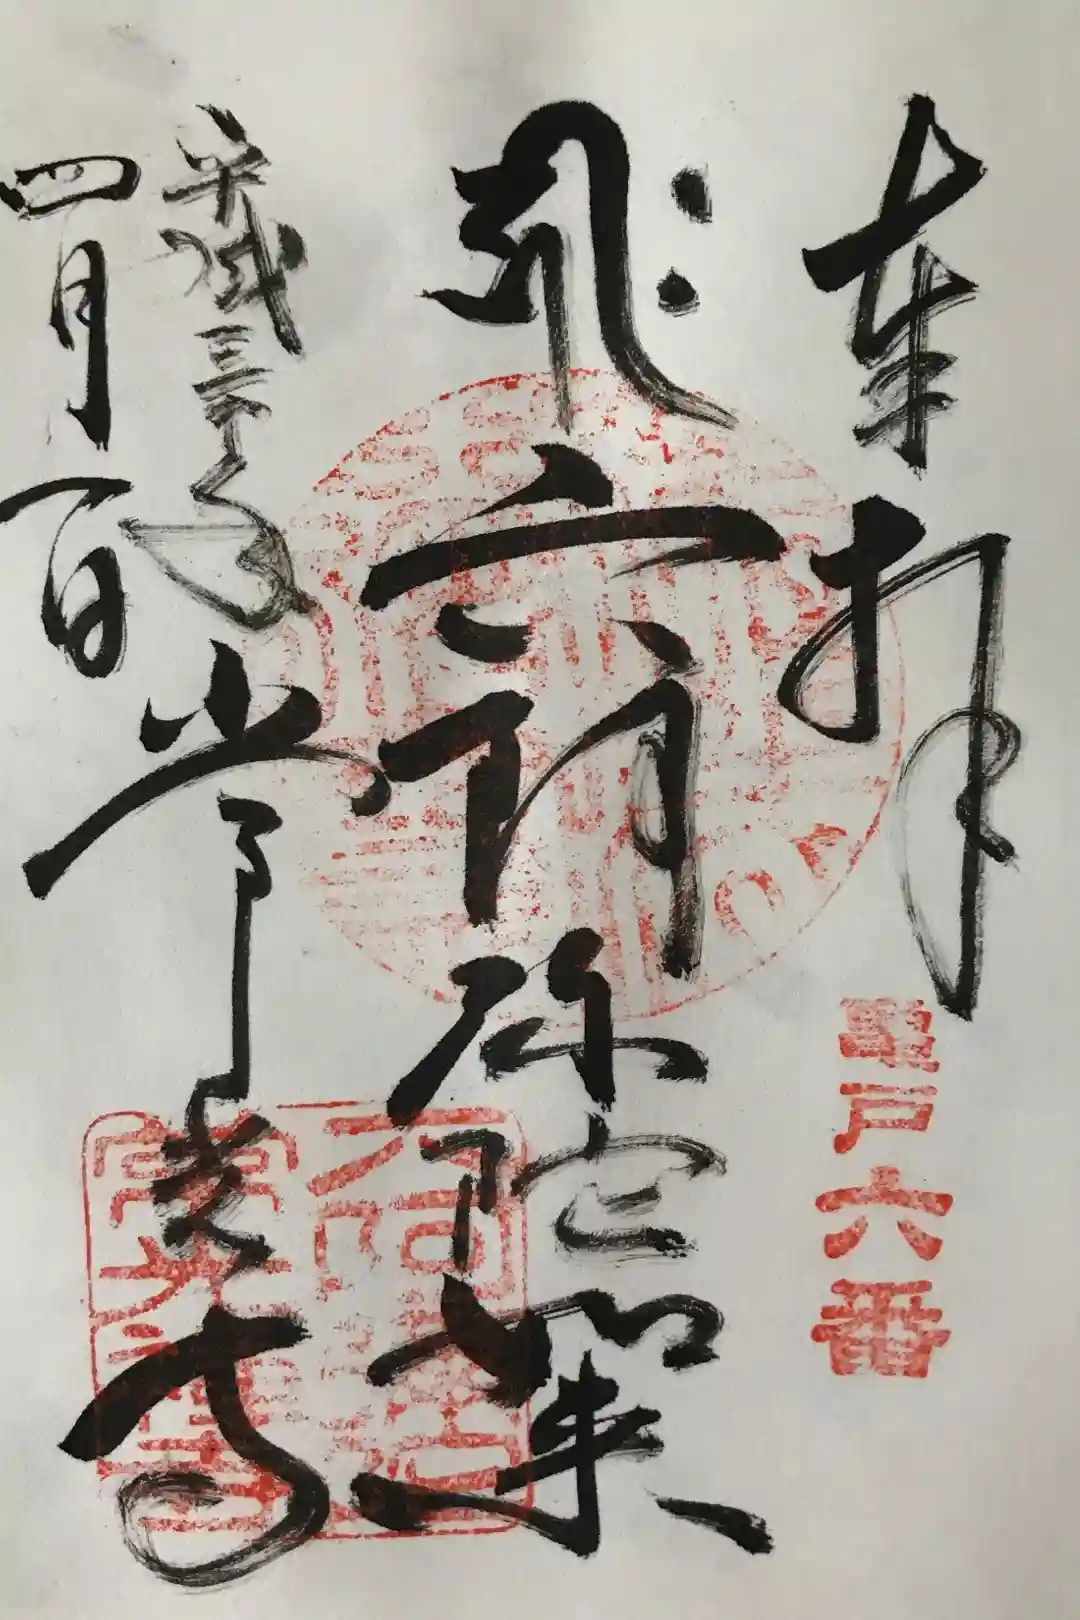 奉拝
龜戸六番
𑖮𑖿𑖨𑖱𑖾
六阿弥陀如来
平成三十年
四月一日
常光寺